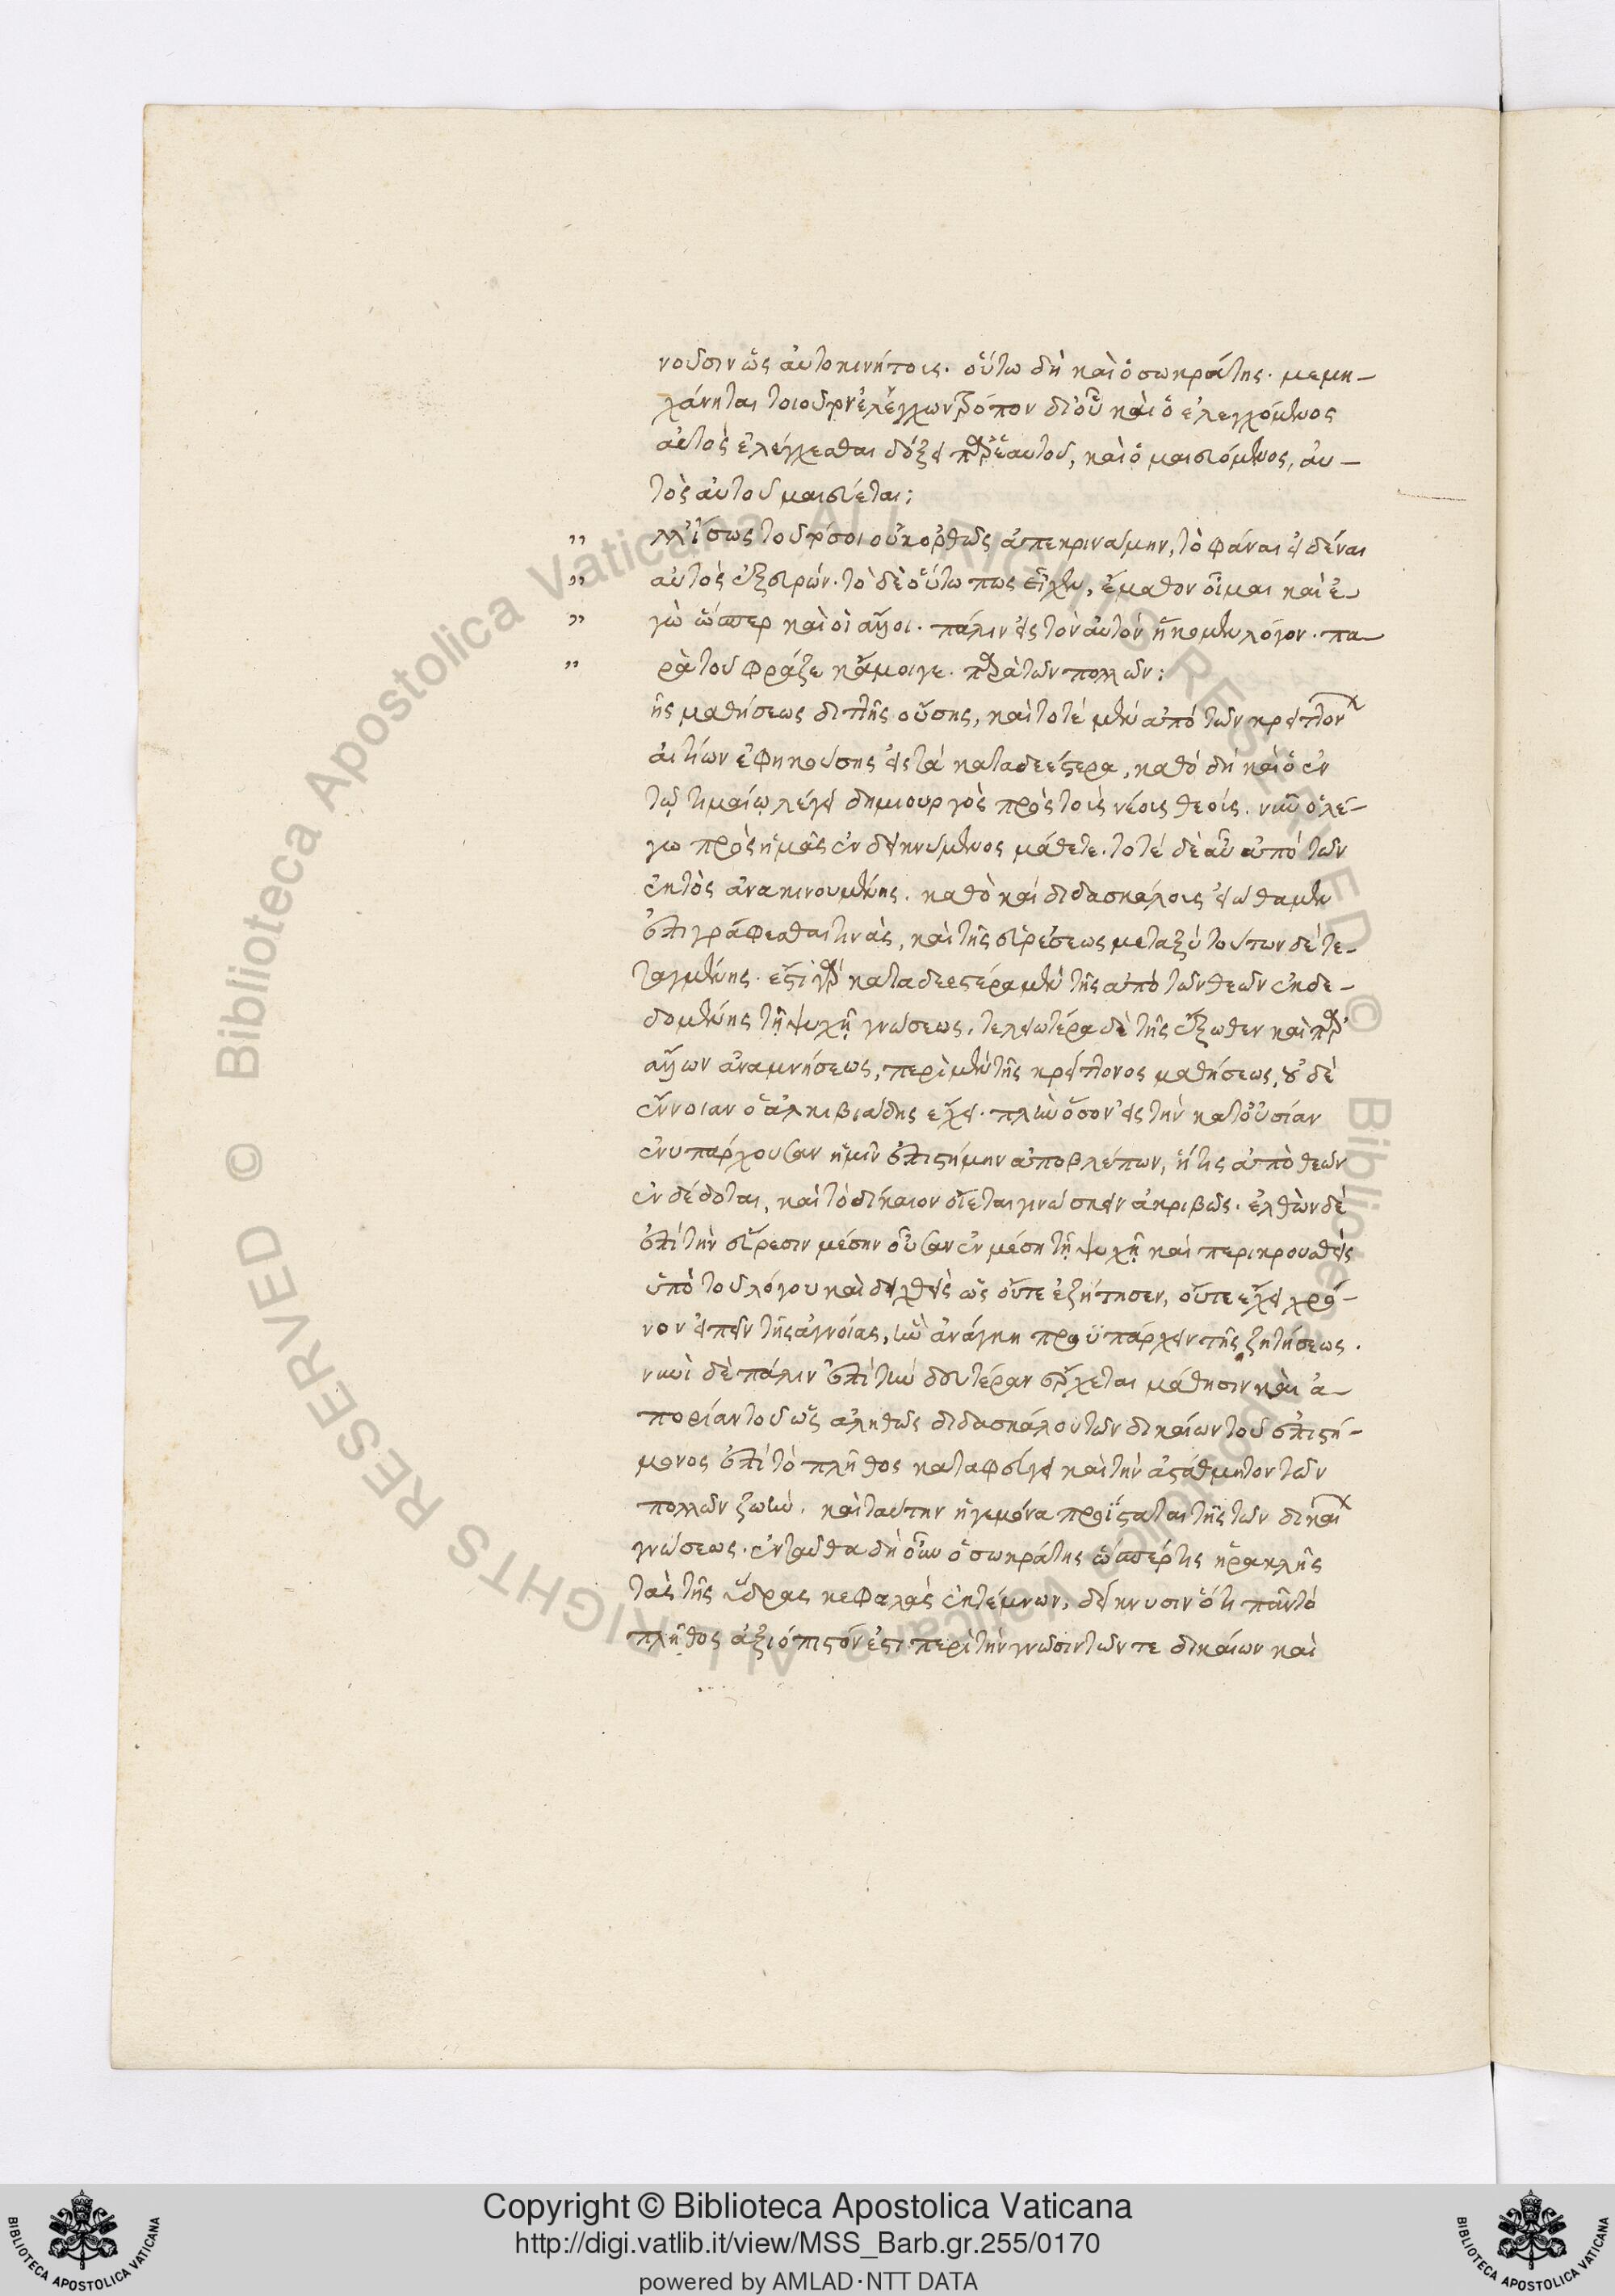 νοῦσιν ὡς αὐτοκινήτοις. οὕτω δὴ καὶ ὁ σωκράτης. μεμη-
χάνηται τοιοῦτον ἐλέγχων τρόπον δι' οὗ καὶ ὁ ἐλεγχόμενος
αὐτὸς ἐλέγχεσθαι δόξει παρ' ἑαυτοῦ, καὶ ὁ μαιευόμενος, αὐ-
τὸς αὐτοῦ μαιεύεται:
,, λλ' ἴσως τοῦτό σοι οὐκ ὀρθῶς ἀπεκρινάμην, τὸ φάναι εἰδέναι
,, αὐτὸς ἐξευρών. τὸ δὲ οὕτω πως εἶχεν, ἔμαθον οἶμαι καὶ ἐ-
,, γὼ ὥσπερ καὶ οἱ ἄλλοι. πάλιν εἰς τὸν αὐτὸν ἥκομεν λόγον. πα-
,, ρὰ τοῦ φράζε κἄμοιγε. παρὰ τῶν πολλῶν:
ῆς μαθήσεως διττῆς οὔσης, καὶ τοτὲ μὲν ἀπὸ τῶν κρειττόν
αἰτίων ἐφηκούσης εἰς τὰ καταδεέστερα, καθὸ δὴ καὶ ὁ ἐν
τῷ τιμαίῳ λέγει δημιουργὸς πρὸς τοὺς νέους θεούς. νῦν ὃ λέ-
γω πρὸς ὑμᾶς ἐνδεικνύμενος μάθετε. τοτὲ δὲ αὖ ἀπὸ τῶν
ἐκτὸς ἀνακινουμένης. καθὸ καὶ διδασκάλους εἰώθαμεν
ἐπιγράφεσθαι τινὰς, καὶ τῆς εὑρέσεως μεταξὺ τούτων δὲ τε-
ταγμένης. ἔστι γὰρ καταδεεστέρα μὲν τῆς ἀπὸ τῶν θεῶν ἐκδε-
δομένης τῇ ψυχῇ γνώσεως, τελειωτέρα δὲ τῆς ἔξωθεν καὶ παρ'
ἄλλων ἀναμνήσεως, περὶ μὲν τῆς κρείττονος μαθήσεως, οὐδὲ
ἔννοιαν ὁ ἀλκιβιάδης εἶχε. πλὴν ὅσον εἰς τὴν κατ' οὐσίαν
ἐνυπάρχουσαν ἡμῖν ἐπιστήμην ἀποβλέπων, ἥτις ἀπὸ θεῶν
ἐνδέδοται, καὶ τὸ δίκαιον οἴεται γινώσκειν ἀκριβῶς. ἐλθὼν δὲ
ἐπὶ τὴν εὕρεσιν μέσην οὖσαν ἐν μέσῃ τῇ ψυχῇ καὶ περικρουσθεὶς
ὑπὸ τοῦ λόγου καὶ δειχθεὶς ὡς οὔτε ἐζήτησεν, οὔτε εἶχε χρό-
νον εἰπεῖν τῆς ἀγνοίας, ἣν ἀνάγκη προϋπάρχειν τῆς ζητήσεως.
νυνὶ δὲ πάλιν ἐπὶ τὴν δευτέραν ἔρχεται μάθησιν καὶ ἀ-
πορίαν τοῦ ὡς ἀληθῶς διδασκάλου τῶν δικαίων τοῦ ἐπιστή-
μονος ἐπὶ τὸ πλῆθος καταφεύγει καὶ τὴν ἀστάθμητον τῶν
πολλῶν ζωήν. καὶ ταύτην ἡγεμόνα προΐσταται τῆς τῶν δικαί
γνώσεως. ἐνταῦθα δὴ οὖν ὁ σωκράτης ὥσπέρ τις ἡρακλῆς
τὰς τῆς ὕδρας κεφαλὰς ἐκτέμνων, δείκνυσιν ὅτι πᾶν τὸ
πλῆθος ἀξιόπιστόν ἐστι περὶ τὴν γνῶσιν τῶν τε δικαίων καὶ
Copyright © Biblioteca Apostolica Vaticana
http://digi.vatlib.it/view/MSS_Barb.gr.255/0170
powered by AMLAD·NTT DATA